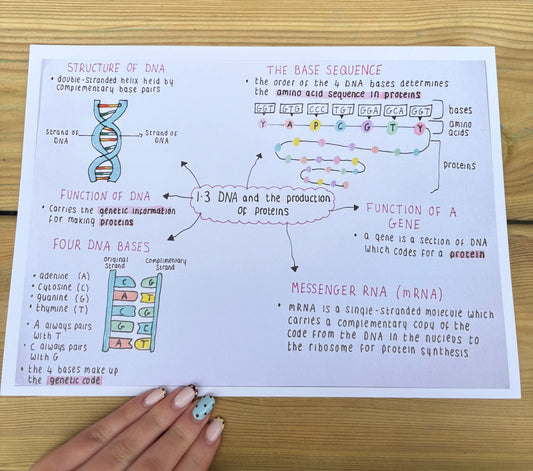 STRUCTURE OF DNA
• double-stranded helix held by
complementary base pairs
Strand of
DNA
Strand of
DNA
THE BASE SEQUENCE
• the order of the 4 DNA bases determines
the amino acid sequence in proteins
GGT GTG CCC TGT GGA GCA GGT
bases
Y A P C G T Y
amino
acids
proteins
FUNCTION OF DNA
• Carries the genetic information
for making proteins
1.3 DNA and the production
of proteins
FUNCTION OF A
GENE
• a gene is a section of DNA
which codes for a protein
FOUR DNA BASES
• adenine (A)
• cytosine (C)
• guanine (G)
• thymine (T)
• A always pairs
with T
• C always pairs
with G
• the 4 bases make up
the genetic code
Original
Strand
Complimentary
Strand
C G
A T
T A
C G
G C
A T
MESSENGER RNA (mRNA)
• mRNA is a single-stranded molecule which
carries a complementary copy of the
code from the DNA in the nucleus to
the ribosome for protein synthesis